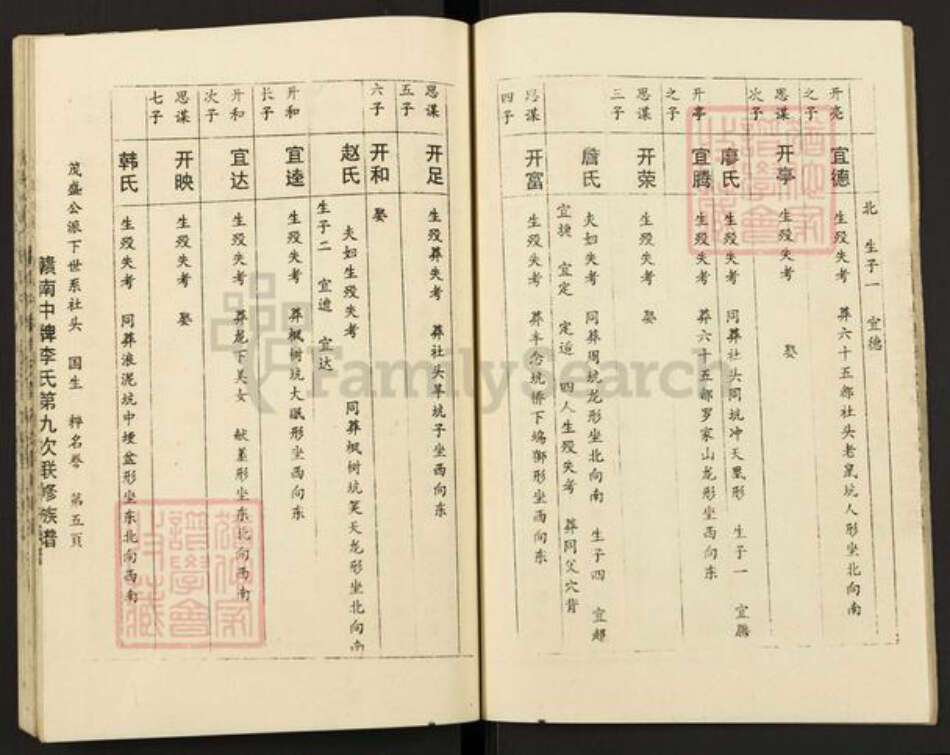 北 生子一 宜德
开亮之子 宜德 生殁失考 葬六十五都社头老鼠坑人形坐北向南
思谋次子 开亭 生殁失考 娶
廖氏 生殁失考 同葬社头同坑冲天凰形 生子一 宜腾
开亭之子 宜腾 生殁失考 葬六十五都罗家山龙形坐西向东
思谋三子 开荣 生殁失考 娶
詹氏 夫妇生殁失考 同葬周坑龙形坐北向南 生子四 宜郝
宜捷 宜定 定适 四人生殁失考 葬同父穴背
思谋四子 开富 生殁失考 葬丰念坑桥下塢狮形坐西向东
思谋五子 开足 生殁葬失考 葬社头羊坑子坐西向东
六子 开和 娶
赵氏 夫妇生殁失考 同葬枫树坑笑天龙形坐北向南
生子二 宜逵 宜达
开和长子 宜逵 生殁失考 葬枫树坑大眠形坐西向东
开和次子 宜达 生殁失考 葬龙下美女献堇形坐东北向西南
思谋七子 开映 生殁失考 娶
韩氏 生殁失考 同葬浪泥坑中埂盆形坐东北向西南
茂盛公派下世系社头 国生 粹名誊 第五頁
赣南中牌李氏第九次联修族谱
FamilySearch